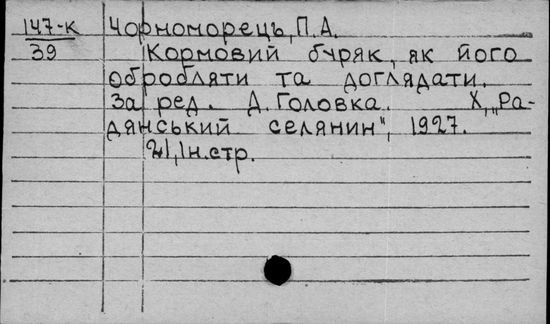 147-к Чорноморець, П.А.
39 Кормовий буряк, як його
обробляти та доглядати.
За ред. Д. Головка. Х, „Ра-
дянський селянин", 1927.
21, 1н.стр.